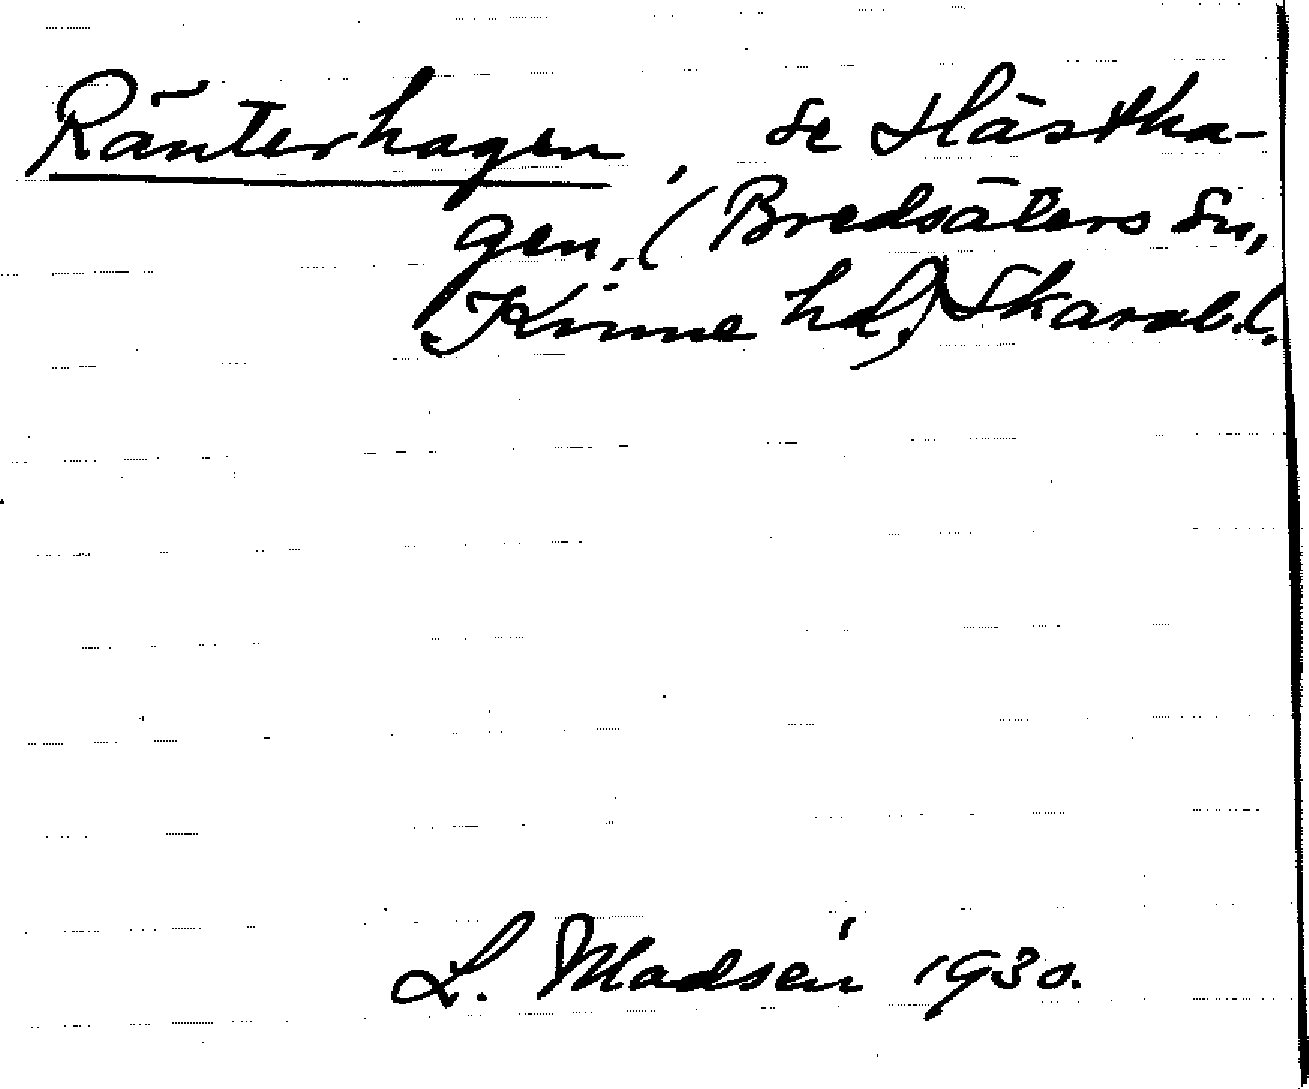 Ränterhagen, se Hästha-
gen, (Bredsäters sn,
Kinne hd) Skarab.l.
L. Madsén 1930.